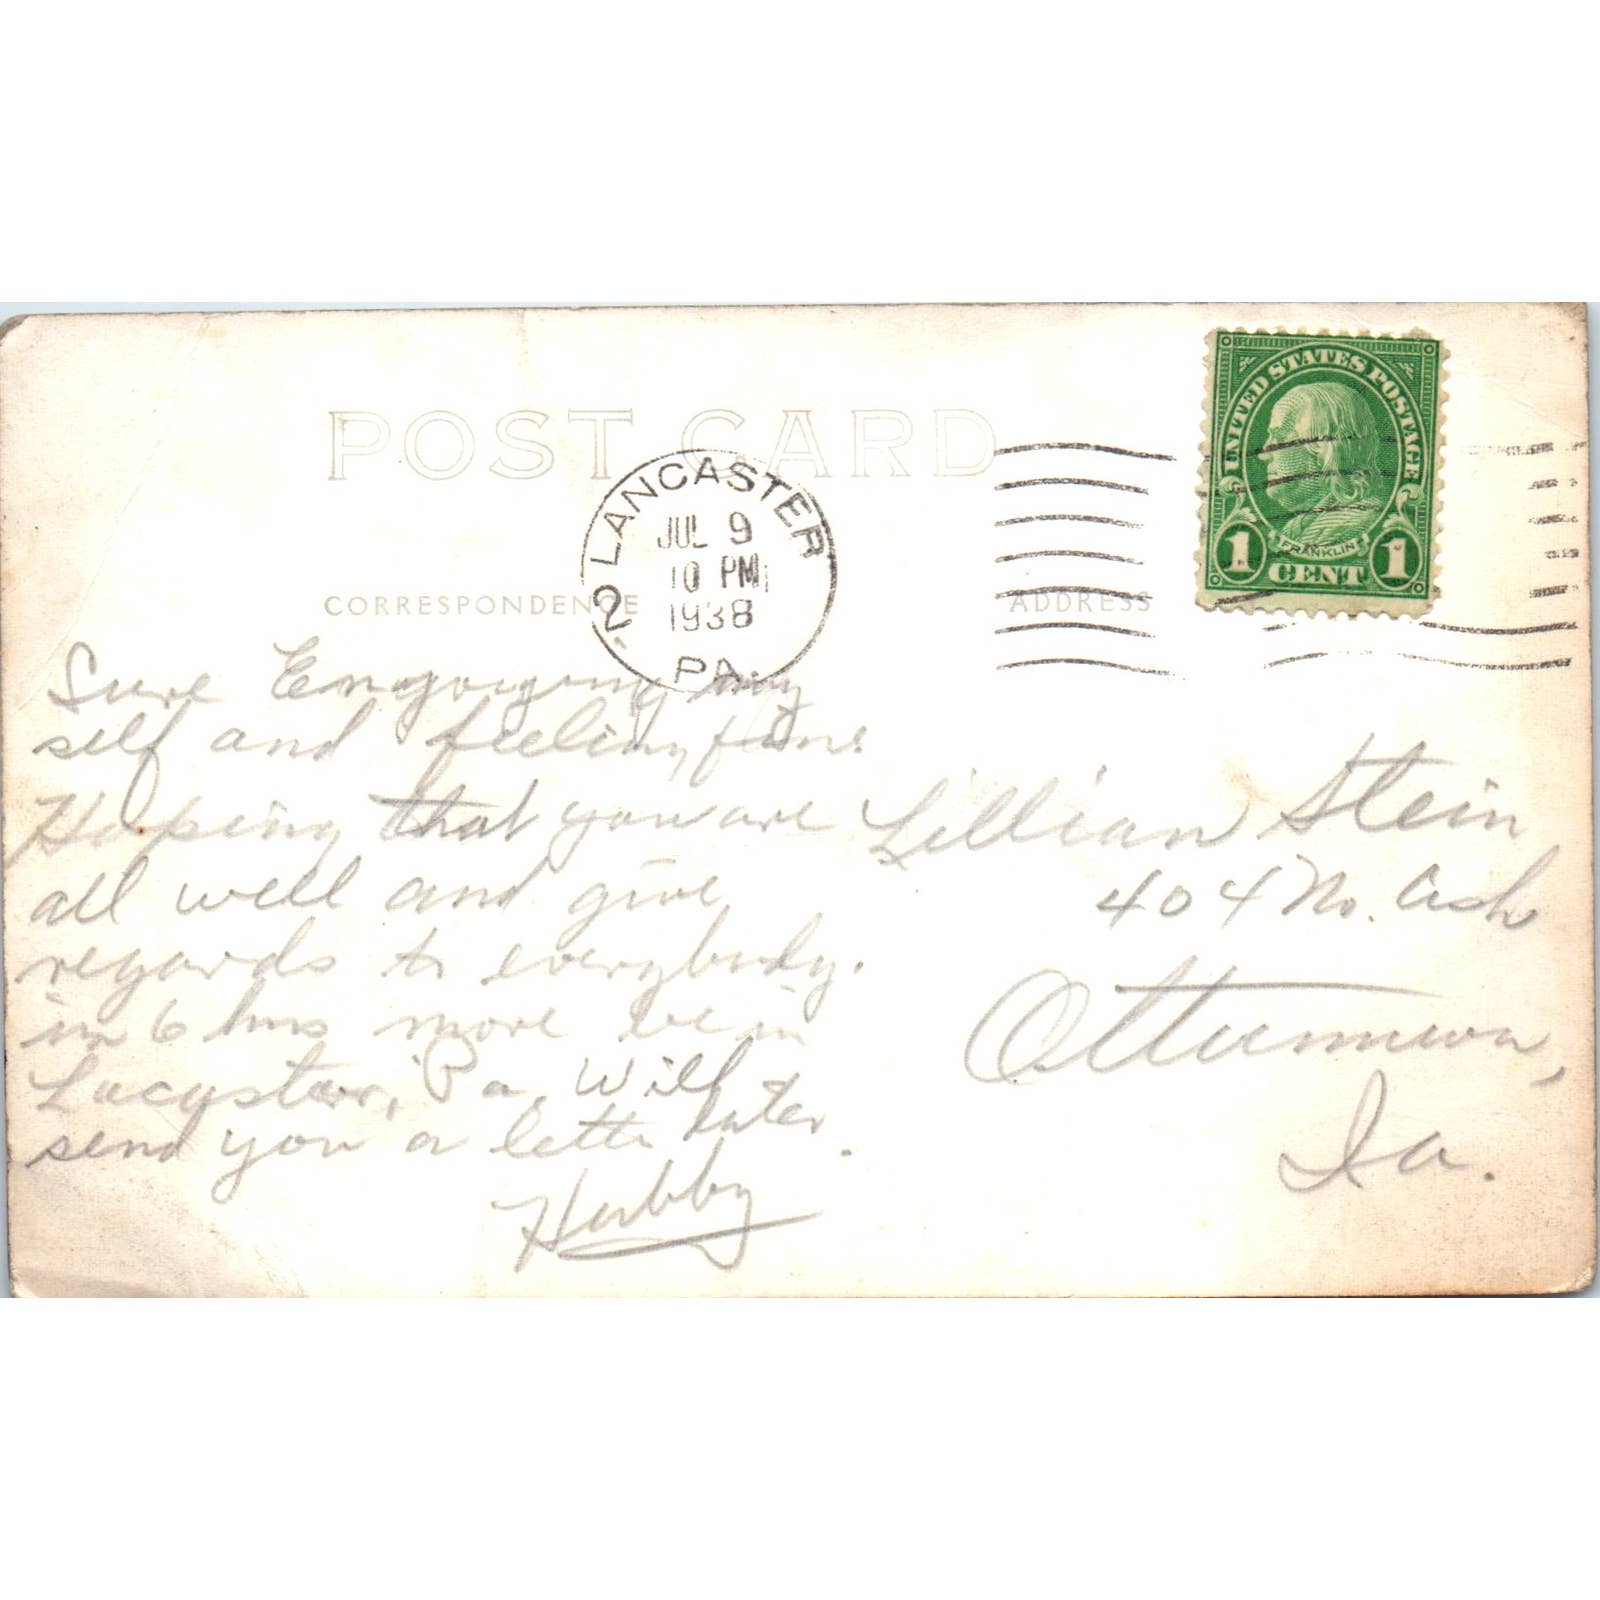 UNITED STATES POSTAGE
FRANKLIN
1 CENT 1
POST CARD
LANCASTER
JUL 9
10 PM
1938
2
PA.
CORRESPONDENCE
ADDRESS
Sure Engoying my
self and feeling fine.
Hoping that you are
all well and give
regards to everybody.
in 6 hrs more be in
Lacaster, Pa. Will
send you a letter later.
Hubby
Lillian Stein
404 No. Ash
Ottumwa,
Ia.